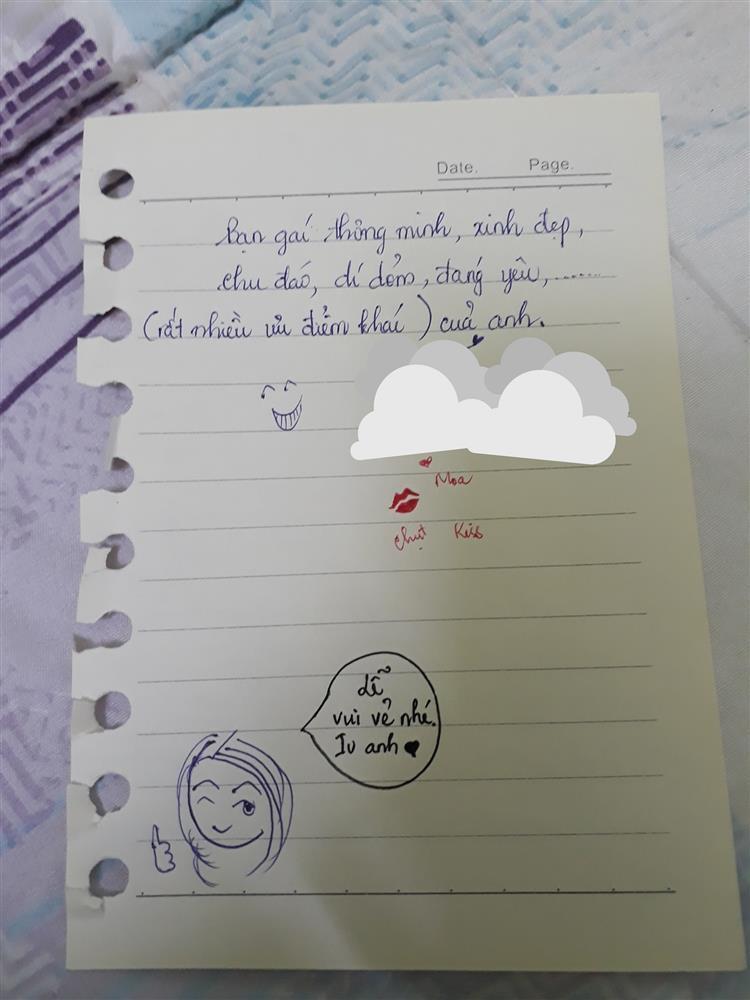 Date. Page.
Bạn gái thông minh, xinh đẹp,
chu đáo, dí dỏm, đáng yêu, .......
(rất nhiều ưu điểm khác) của anh.
Moa
chụt Kiss
Lễ
vui vẻ nhé.
Iu anh